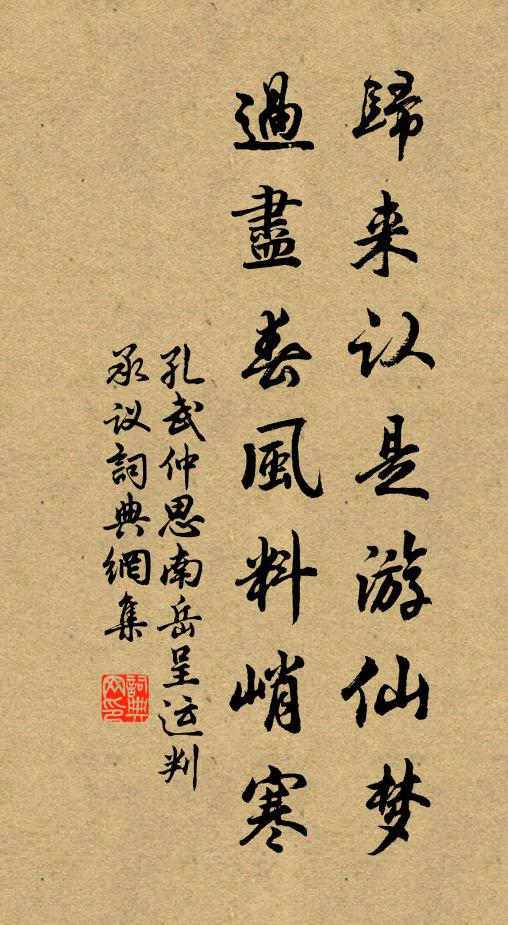 歸来认是游仙梦
過盡春風料峭寒
孔武仲思南岳呈运判
承议詞典網集
詞典网印